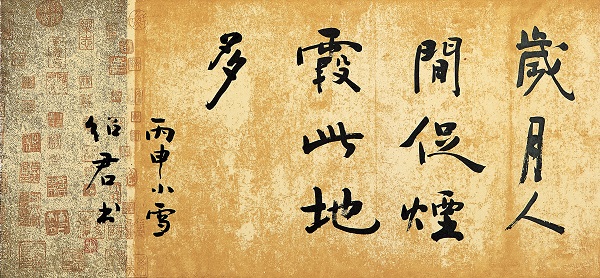 歲月人
間促煙
霞此地
多
丙申小雪
紹君书